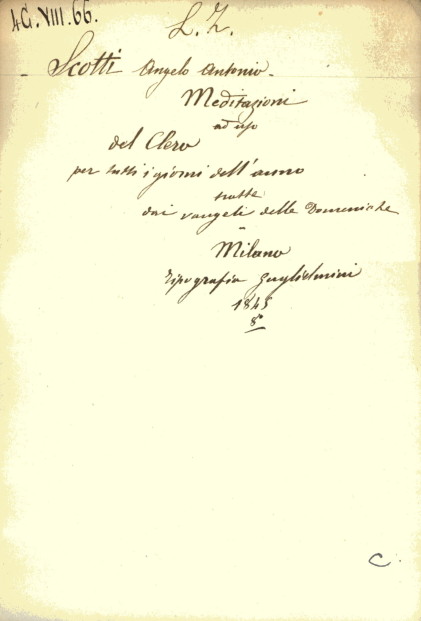 4G.VIII.66.
L. Z.
Scotti Angelo Antonio.
Meditazioni
ad uso
del Clero
per tutti i giorni dell'anno
tratte
dai vangeli delle Domeniche
Milano
Tipografia Guglielmini
1845
8°
C.